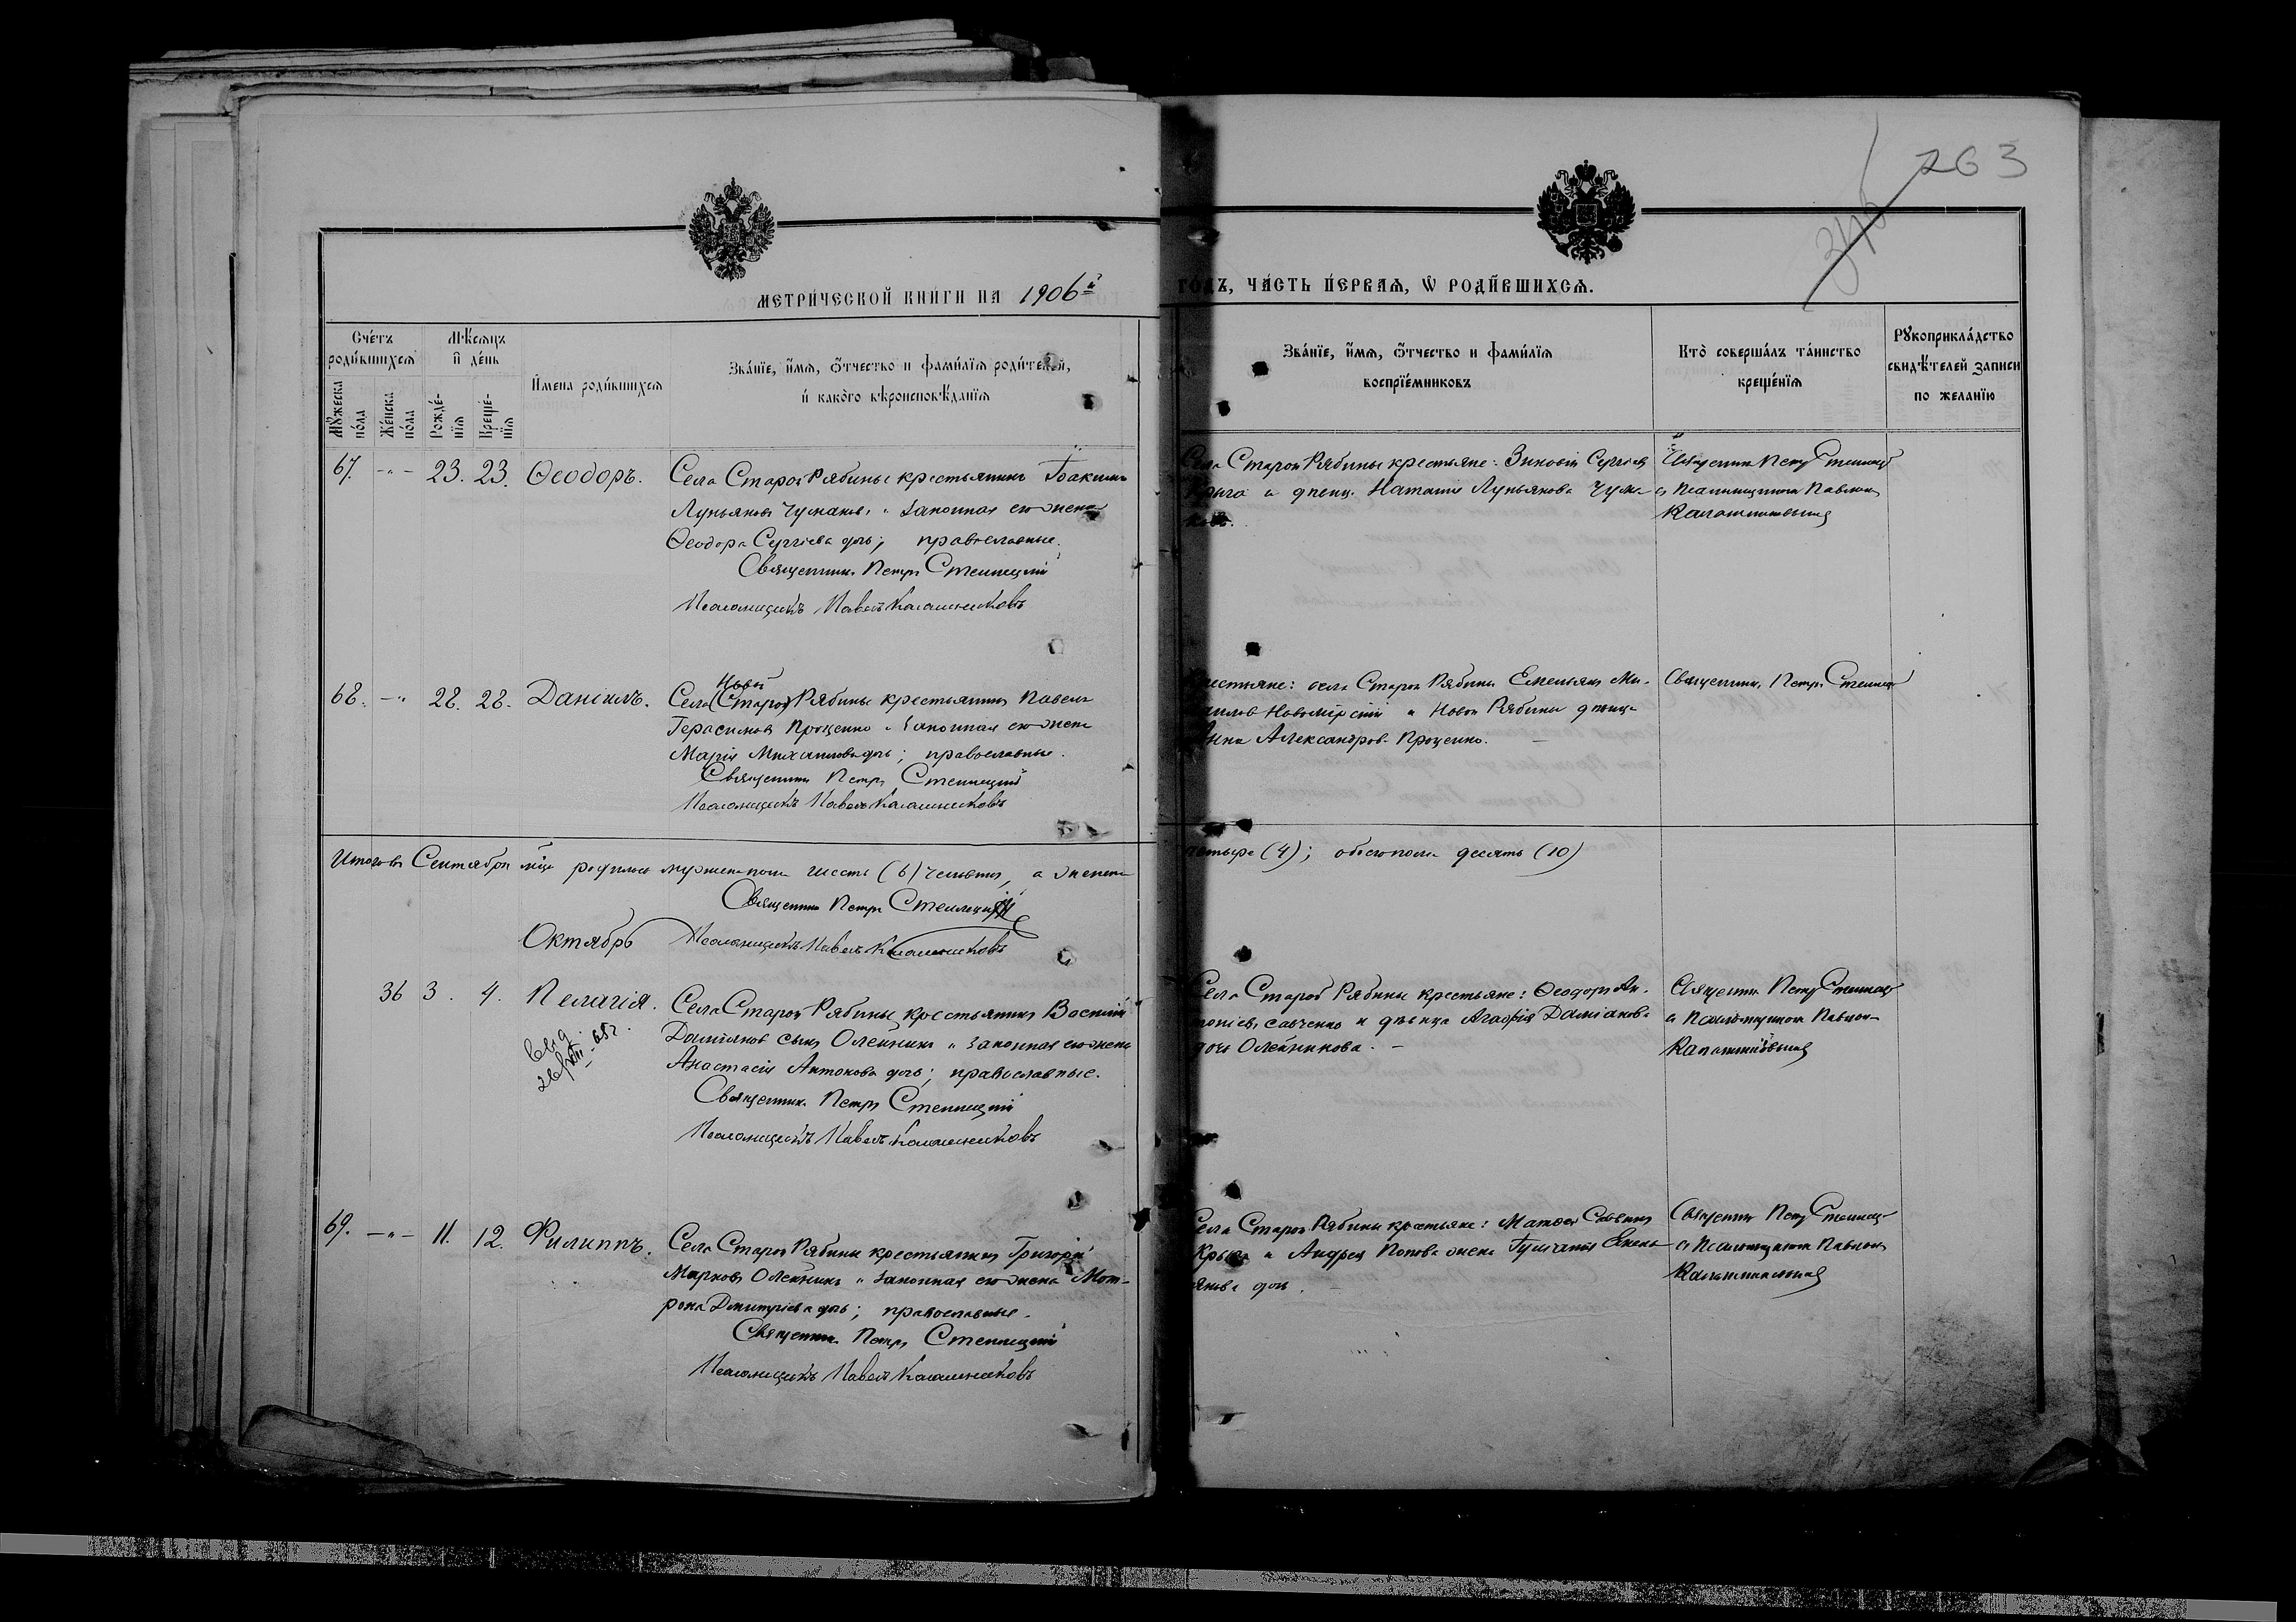 263
МЕТРИ́ЧЕСКОЙ КНИ́ГИ НА 1906й
ГО́ДЪ, ЧА́СТЬ ПЕ́РВАЯ, Ѡ РОДИ́ВШИХСЯ.
Сче́тъ роди́вшихся
Мꙋ́жеска по́ла
Же́нска по́ла
Мѣ́сяцъ и де́нь
Рожде́-нїя
Креще́-нїя
И́мена роди́вшихся
Зва́нїе, и́мя, ѻ́тчество и фами́лїя роди́телей,
и како́го вѣроисповѣ́данїя
Зва́нїе, и́мя, ѻ́тчество и фами́лїя
воспрїе́мниковъ
Кто̀ соверша́лъ та́инство
креще́нїя
Рꙋкоприкла́дство
свидѣ́телей записи
по жела́нїю
67. -"- 23. 23. Ѳеодоръ.
Села Старой Рябины крестьянинъ Іоакимъ
Лукьяновъ Чумаковъ и законная его жена
Ѳеодора Сергіева дочь; православные.
Священникъ Петръ Стеллецкій
Псаломщикъ Павелъ Калашниковъ
Села Старой Рябины крестьяне: Зиновій Сергіевъ
и девица Наталія Лукьянова Чума-
кова.
Священникъ Петръ Стеллецкій
съ Псаломщикомъ Павломъ
Калашниковымъ
68. -"- 28. 28. Даніилъ.
Новой
Села (Старой) Рябины крестьянинъ Павелъ
Герасимовъ Проценко и законная его жена
Марія Михаилова дочь; православные.
Священникъ Петръ Стеллецкій
Псаломщикъ Павелъ Калашниковъ
Крестьяне: села Старой Рябины Емельянъ Ми-
хаиловъ Новомірскій и Новой Рябины девица
Анна Александрова Проценко.
Священникъ Петръ Стеллецкій
Итого въ Сентябрѣ мцѣ родилось мужеска пола шесть (6) человѣкъ, а женска
четыре (4); обоего пола десять (10)
Священникъ Петръ Стеллецкій
Октябрь
Псаломщикъ Павелъ Калашниковъ
36 3. 4. Пелагія.
Села Старой Рябины крестьянинъ Василій
Даміановъ сынъ Олейникъ и законная его жена
Анастасія Антонова дочь; православные.
Священникъ Петръ Стеллецкій
Псаломщикъ Павелъ Калашниковъ
Села Старой Рябины крестьяне: Ѳеодоръ Ан-
тоніевъ Савченко и девица Агафія Даміанова
дочь Олейникова.
Священникъ Петръ Стеллецкій
съ Псаломщикомъ Павломъ
Калашниковымъ
69. -"- 11. 12. Филиппъ.
Села Старой Рябины крестьянинъ Григорій
Марковъ Олейникъ и законная его жена Мот-
рона Димитріева дочь; православные.
Священникъ Петръ Стеллецкій
Псаломщикъ Павелъ Калашниковъ
Села Старой Рябины крестьяне: Матѳей Саввинъ
и Андрея Попова жена Іуліанія
дочь.
Священникъ Петръ Стеллецкій
съ Псаломщикомъ Павломъ
Калашниковымъ